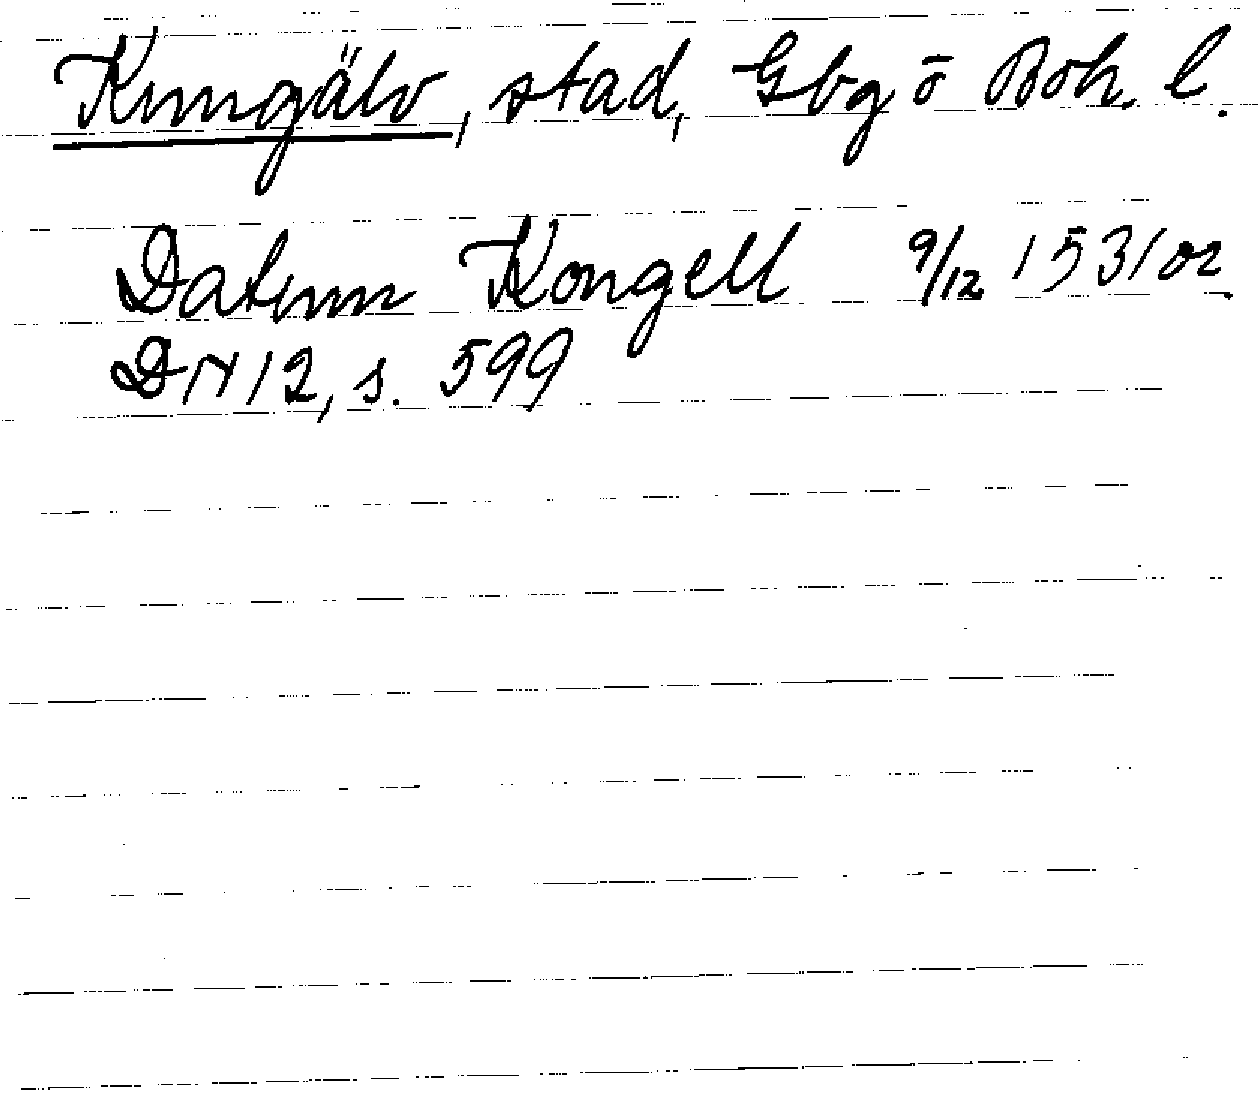 Kungälv, stad, Gbg o Boh. l.
Datum Kongell 9/12 1531 or.
DN 12, s. 599